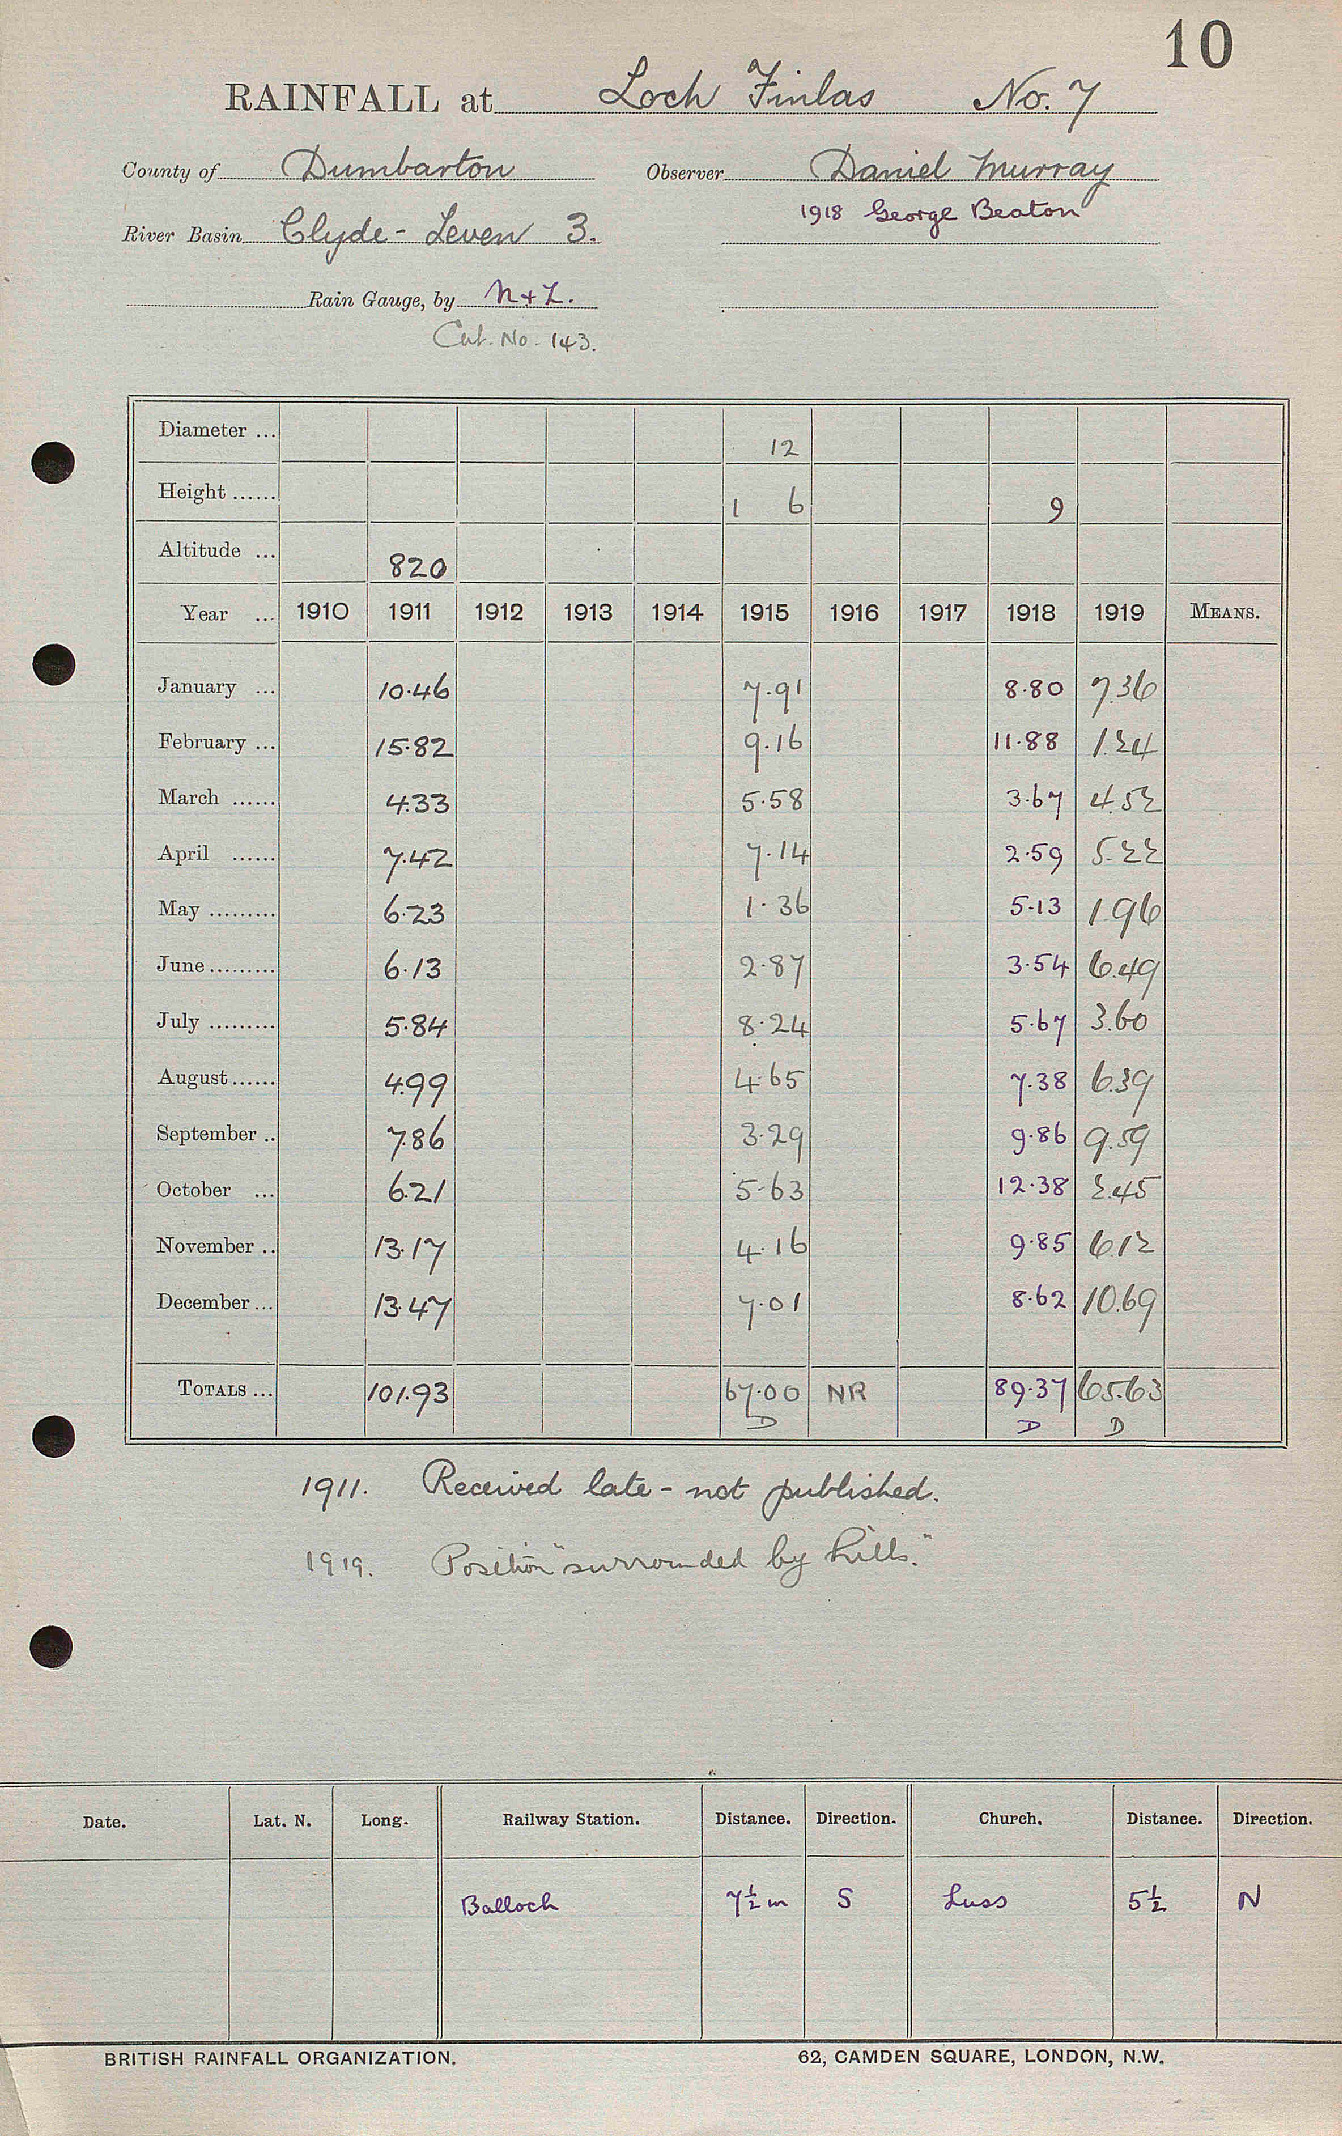 10
RAINFALL at Loch Finlas No. 7
County of Dumbarton Observer Daniel Murray
1918 George Beaton
River Basin Clyde - Leven 3.
Rain Gauge, by N + Z.
Cat. No. 143.
Diameter ... 12
Height ...... 1 6 9
Altitude ... 820
Year ... 1910 1911 1912 1913 1914 1915 1916 1917 1918 1919 MEANS.
January ... 10.46 7.91 8.80 7.36
February ... 15.82 9.16 11.88 1.24
March ...... 4.33 5.58 3.67 4.52
April ...... 7.42 7.14 2.59 5.22
May ......... 6.23 1.36 5.13 1.96
June ......... 6.13 2.87 3.54 6.49
July ......... 5.84 8.24 5.67 3.60
August ...... 4.99 4.65 7.38 6.39
September .. 7.86 3.29 9.86 9.59
October ... 6.21 5.63 12.38 2.45
November .. 13.17 4.16 9.85 6.12
December ... 13.47 7.01 8.62 10.69
TOTALS ... 101.93 67.00 NR 89.37 65.63
D D D
1911. Received late - not published.
1919. Position "surrounded by hills."
Date. Lat. N. Long. Railway Station. Distance. Direction. Church. Distance. Direction.
Balloch 7½ m S Luss 5½ N
BRITISH RAINFALL ORGANIZATION. 62, CAMDEN SQUARE, LONDON, N.W.